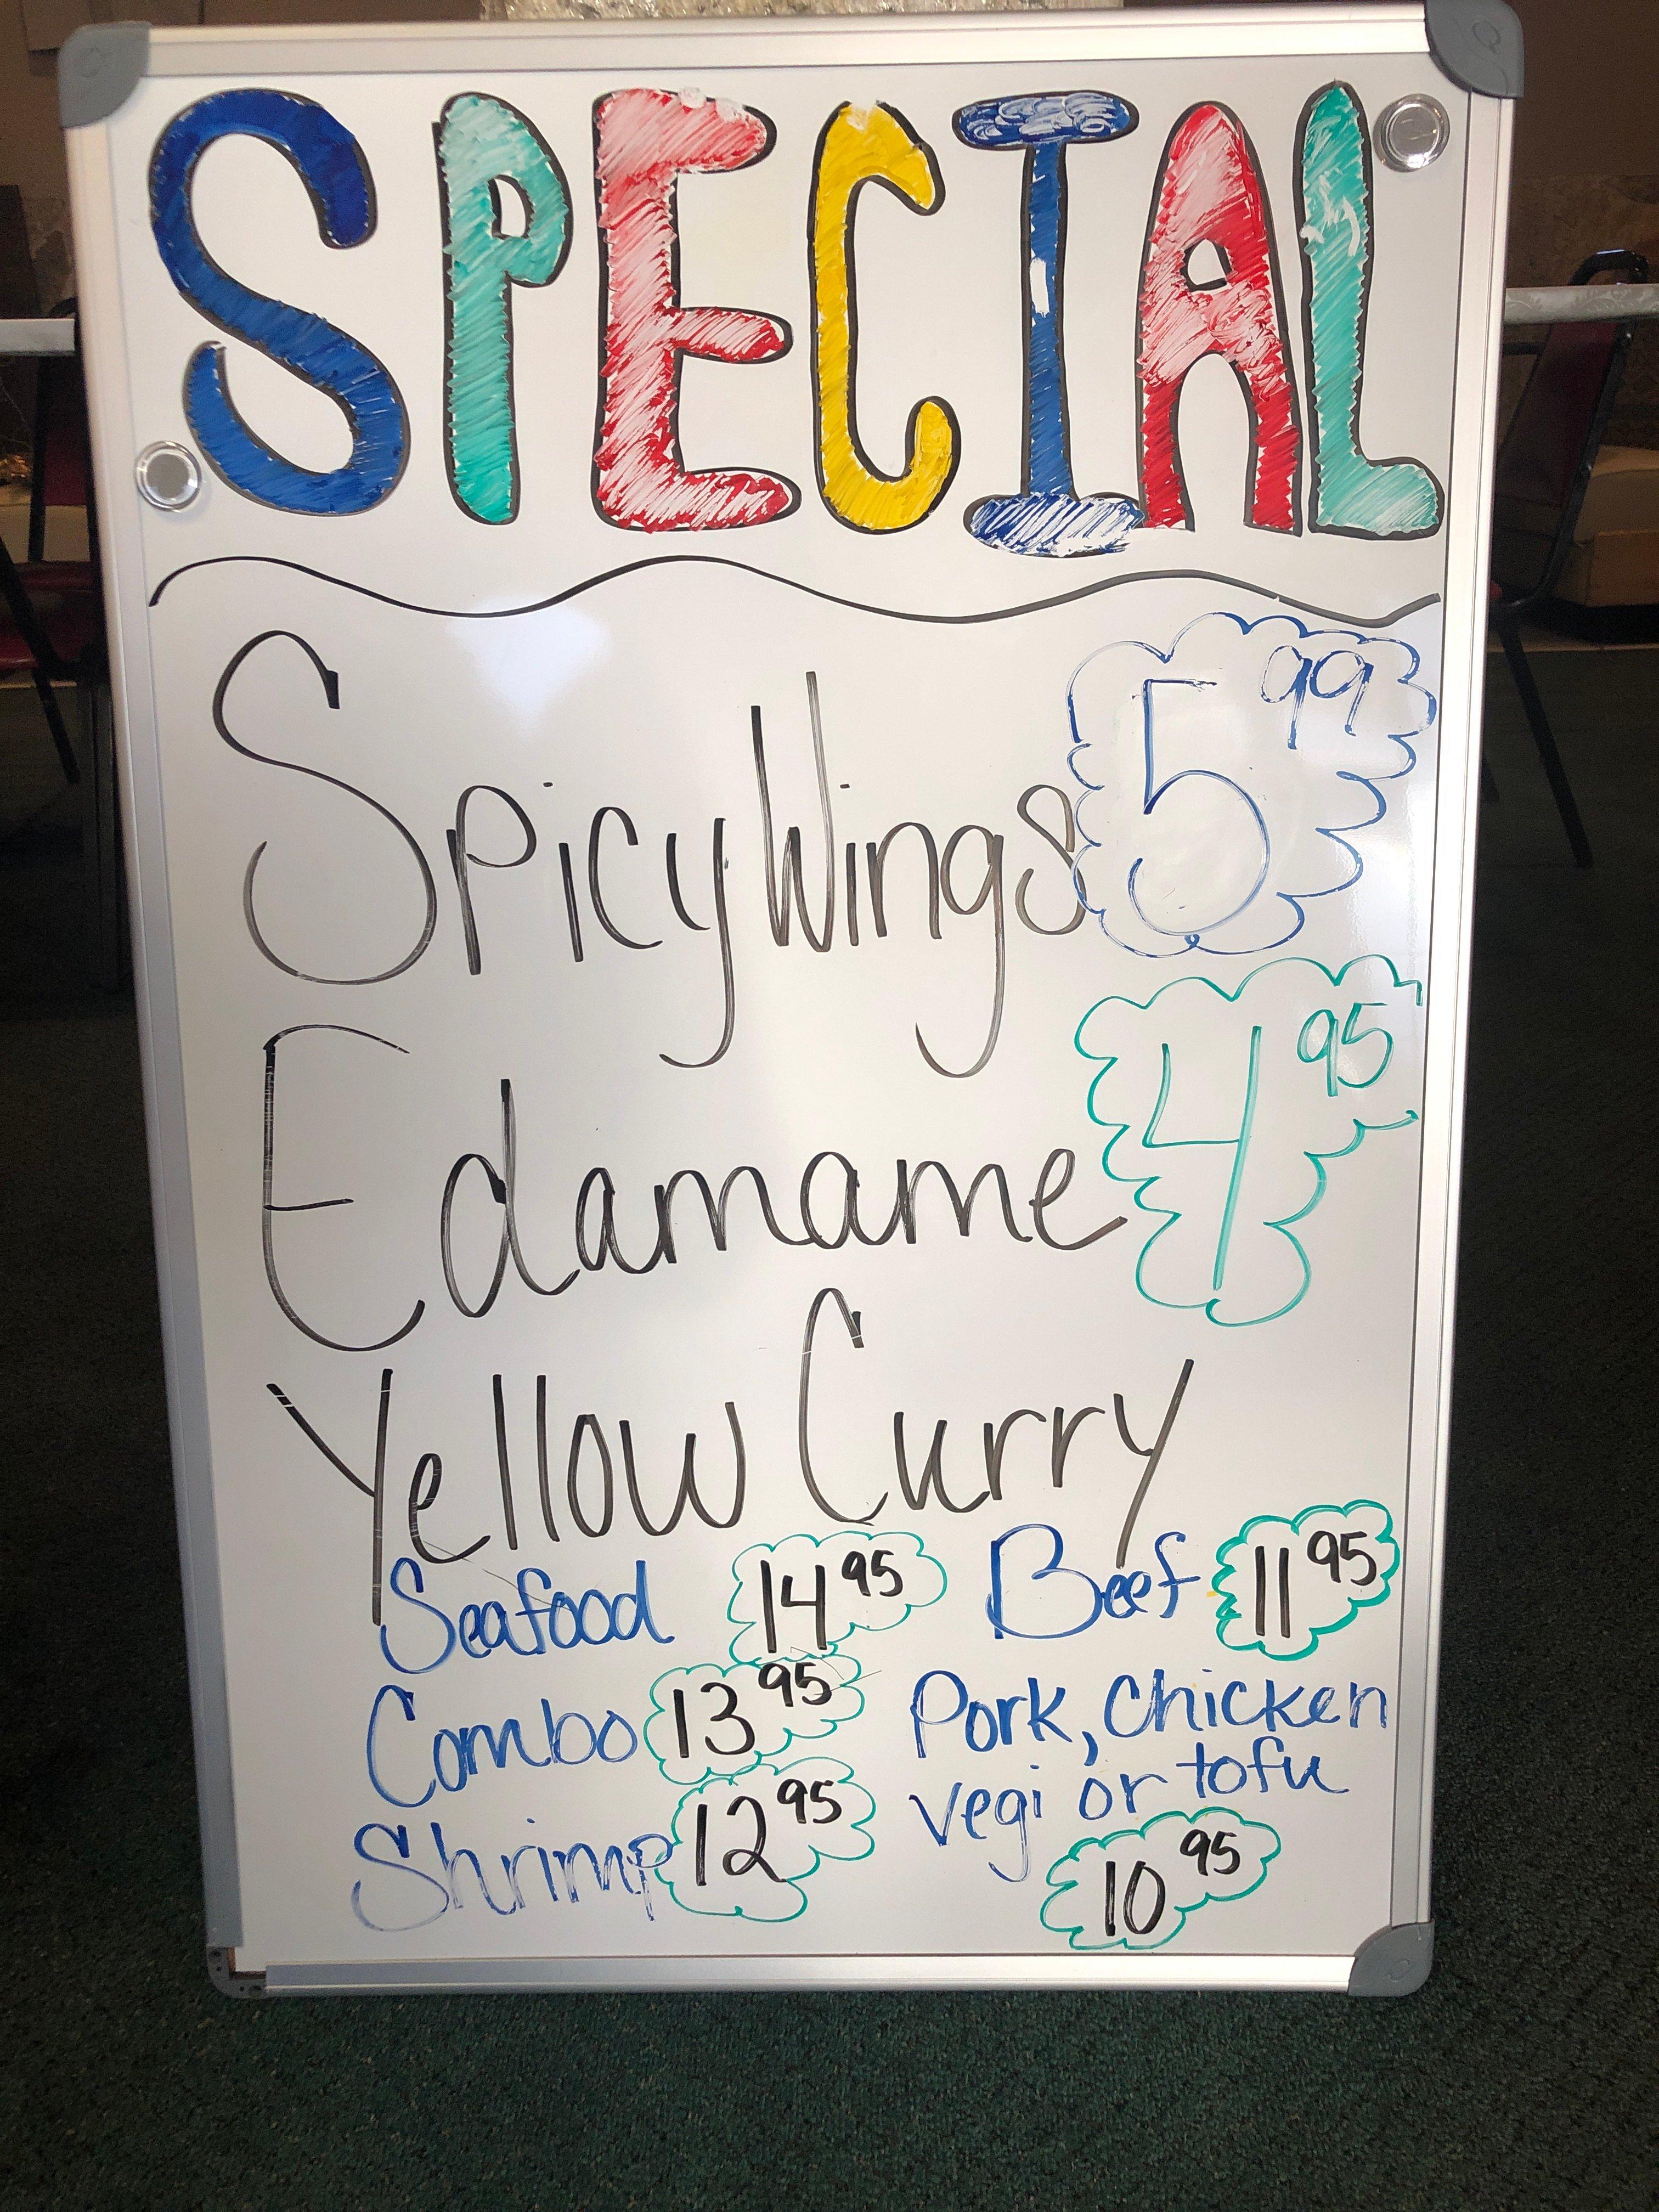 SPECIAL
Spicy Wings 5.99
Edamame 4.95
Yellow Curry
Seafood 14.95
Combo 13.95
Shrimp 12.95
Beef 11.95
Pork, Chicken
vegi or tofu
10.95